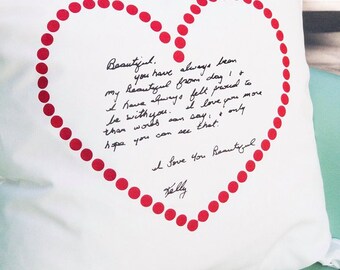 Beautiful.
you have always been
my Beautiful from day 1 &
I have always felt proud to
be with you. I love you more
than words can say, & only
hope you can see that.
I Love You Beautiful
Kelly